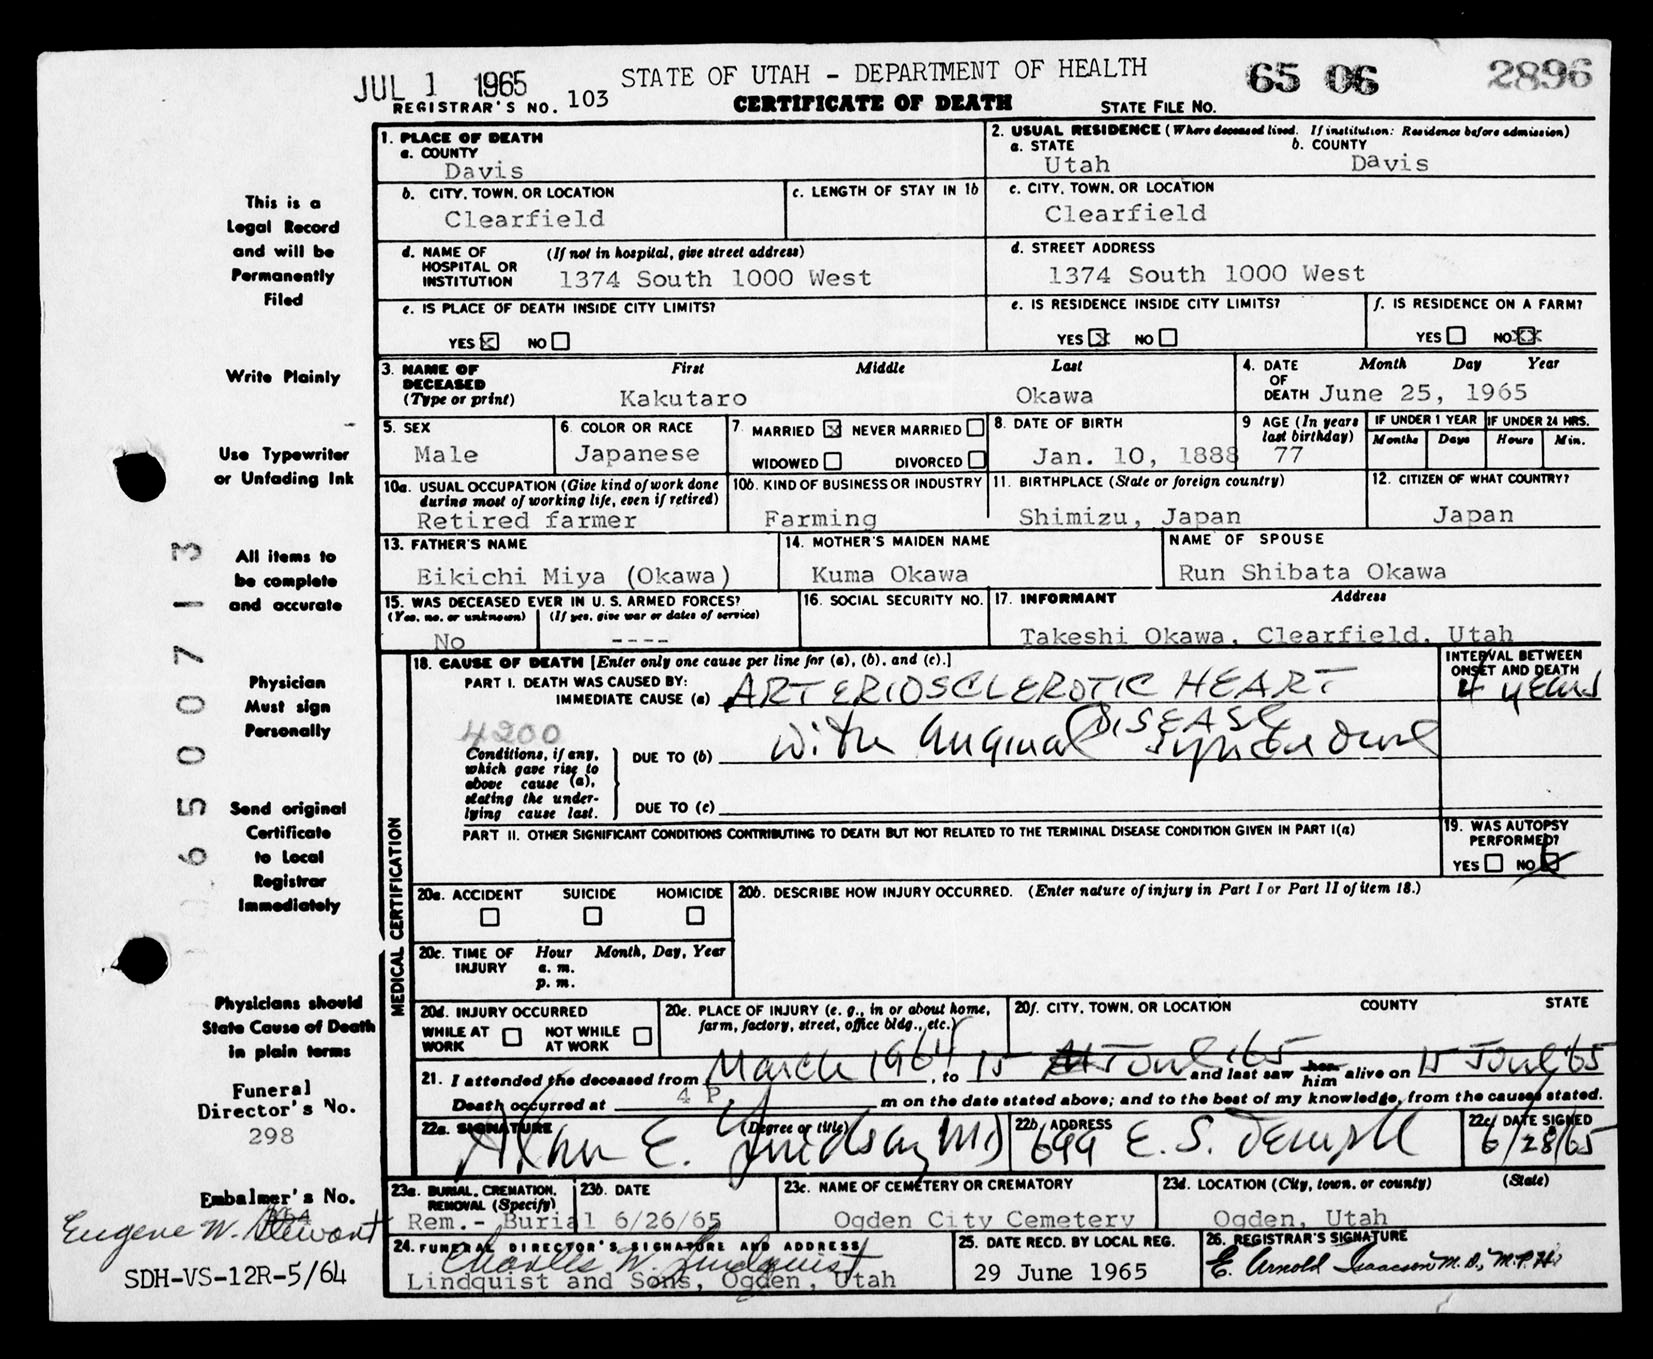 JUL 1 1965 STATE OF UTAH - DEPARTMENT OF HEALTH 65 06 2896
REGISTRAR'S NO. 103 CERTIFICATE OF DEATH STATE FILE NO.
1. PLACE OF DEATH
a. COUNTY
Davis
2. USUAL RESIDENCE (Where deceased lived. If institution: Residence before admission)
a. STATE b. COUNTY
Utah Davis
b. CITY, TOWN, OR LOCATION
Clearfield
c. LENGTH OF STAY IN 1b
c. CITY, TOWN, OR LOCATION
Clearfield
d. NAME OF HOSPITAL OR INSTITUTION (If not in hospital, give street address)
1374 South 1000 West
d. STREET ADDRESS
1374 South 1000 West
e. IS PLACE OF DEATH INSIDE CITY LIMITS?
YES NO
e. IS RESIDENCE INSIDE CITY LIMITS?
YES NO
f. IS RESIDENCE ON A FARM?
YES NO
3. NAME OF DECEASED (Type or print) First Middle Last
Kakutaro Okawa
4. DATE OF DEATH Month Day Year
June 25, 1965
5. SEX
Male
6. COLOR OR RACE
Japanese
7. MARRIED NEVER MARRIED
WIDOWED DIVORCED
8. DATE OF BIRTH
Jan. 10, 1888
9 AGE (In years last birthday)
77
IF UNDER 1 YEAR IF UNDER 24 HRS.
Months Days Hours Min.
10a. USUAL OCCUPATION (Give kind of work done during most of working life, even if retired)
Retired farmer
10b. KIND OF BUSINESS OR INDUSTRY
Farming
11. BIRTHPLACE (State or foreign country)
Shimizu, Japan
12. CITIZEN OF WHAT COUNTRY?
Japan
13. FATHER'S NAME
Eikichi Miya (Okawa)
14. MOTHER'S MAIDEN NAME
Kuma Okawa
NAME OF SPOUSE
Run Shibata Okawa
15. WAS DECEASED EVER IN U. S. ARMED FORCES?
(Yes, no, or unknown) (If yes, give war or dates of service)
No ----
16. SOCIAL SECURITY NO.
17. INFORMANT Address
Takeshi Okawa, Clearfield, Utah
MEDICAL CERTIFICATION
18. CAUSE OF DEATH [Enter only one cause per line for (a), (b), and (c).]
INTERVAL BETWEEN ONSET AND DEATH
PART I. DEATH WAS CAUSED BY:
IMMEDIATE CAUSE (a) ARTERIOSCLEROTIC HEART 4 years
DISEASE
4200
Conditions, if any, which gave rise to above cause (a), stating the underlying cause last.
DUE TO (b) with Anginal Syndrome
DUE TO (c)
PART II. OTHER SIGNIFICANT CONDITIONS CONTRIBUTING TO DEATH BUT NOT RELATED TO THE TERMINAL DISEASE CONDITION GIVEN IN PART I(a)
19. WAS AUTOPSY PERFORMED?
YES NO
20a. ACCIDENT SUICIDE HOMICIDE
20b. DESCRIBE HOW INJURY OCCURRED. (Enter nature of injury in Part I or Part II of item 18.)
20c. TIME OF INJURY Hour Month, Day, Year
a. m.
p. m.
20d. INJURY OCCURRED
WHILE AT WORK NOT WHILE AT WORK
20e. PLACE OF INJURY (e. g., in or about home, farm, factory, street, office bldg., etc.)
20f. CITY, TOWN, OR LOCATION COUNTY STATE
21. I attended the deceased from March 1964, to 15 June '65 and last saw her him alive on 15 June '65
Death occurred at 4 P. m on the date stated above; and to the best of my knowledge, from the causes stated.
22a. SIGNATURE (Degree or title)
E. Lindsay MD
22b. ADDRESS
699 E. S. Temple
22c. DATE SIGNED
6/28/65
23a. BURIAL, CREMATION, REMOVAL (Specify)
Rem.- Burial
23b. DATE
6/26/65
23c. NAME OF CEMETERY OR CREMATORY
Ogden City Cemetery
23d. LOCATION (City, town, or county) (State)
Ogden, Utah
24. FUNERAL DIRECTOR'S SIGNATURE AND ADDRESS
Charles W. Lindquist
Lindquist and Sons, Ogden, Utah
25. DATE RECD. BY LOCAL REG.
29 June 1965
26. REGISTRAR'S SIGNATURE
E. Arnold Isaacson M.D., M.P.H.
This is a
Legal Record
and will be
Permanently
Filed
Write Plainly
Use Typewriter
or Unfading Ink
All items to
be complete
and accurate
Physician
Must sign
Personally
Send original
Certificate
to Local
Registrar
Immediately
Physicians should
State Cause of Death
in plain terms
Funeral
Director's No.
298
Embalmer's No.
Eugene W. Stewart
SDH-VS-12R-5/64
0 6 5 0 0 7 1 3